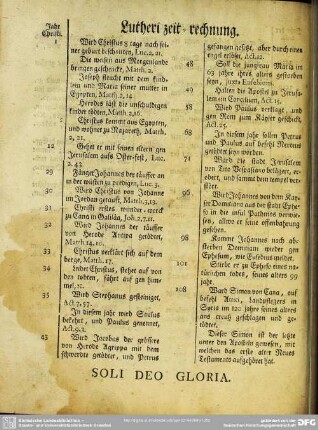 Lutheri zeit-rechnung.
Jahr
Christi.
1
Wird Christus 8 tage nach sei-
ner geburt beschnitten, Luc. 2, 21.
Die weisen aus Morgenlande
bringen geschencke, Matth. 2.
Joseph fleucht mit dem kind-
lein und Maria seiner mutter in
Egypten, Matth. 2, 14
Herodes läßt die unschuldigen
kinder tödten, Matth. 2, 16
Christus kommt aus Egypten,
und wohnet zu Nazareth, Matth.
2, 23.
12
Gehet er mit seinen eltern gen
Jerusalem aufs Oster-fest, Luc.
2, 42.
29
Fänget Johannes der täuffer an
in der wüsten zu predigen, Luc. 3.
30
Wird Christus von Johanne
im Jordan getauft, Matth. 3, 13.
31
Christi erstes wunder-werck
zu Cana in Galiläa, Joh. 2, 7, 11.
32
Wird Johannes der täuffer
von Herode getödtet,
Matth. 14, 10.
33
Christus verklärt sich auf dem
berge, Matth. 17.
34
Leidet Christus, stehet auf von
den todten, fährt auf gen him-
mel, 10.
35
Wird Stephanus gesteiniget,
Act. 7, 57.
In diesem jahr wird Saulus
bekehrt, und Paulus genennet,
Act. 9, 1.
45
Wird Jacobus der grössere
von Herode Agrippa mit dem
schwerdte getödtet, und Petrus
gefangen gesetzt, aber durch einen
engel erlöset, Act. 12.
48
Soll die jungfrau Maria im
63 jahre ihres alters gestorben
seyn, juxta Eusebium.
Halten die Apostel zu Jerusa-
lem ein Concilium, Act. 15.
Wird Paulus verklagt, und
gen Rom zum Käyser geschickt,
Act. 25.
69
In diesem jahr sollen Petrus
und Paulus auf befehl Neronis
getödtet seyn worden.
71
Ward die stadt Jerusalem
von Tito Vespasiano belägert, er-
obert, und sammt dem tempel ver-
störet.
96
Wird Johannes von dem Kay-
ser Domitiano aus der stadt Ephe-
so in die insul Pathmos verwie-
sen, allwo er seine offenbahrung
gesehen.
98
Kommt Johannes nach ab-
sterben Domitiani wieder gen
Ephesum, wie Eusebius meldet.
101
Stirbt er zu Epheso eines na-
türlichen todes, seines alters 99
jahr.
108
Ward Simon von Cana, auf
befehl Attici, Landpflegers in
Syria im 120 jahre seines alters
ans creutz geschlagen und ge-
tödtet.
Dieser Simon ist der letzte
unter den Aposteln gewesen, mit
welchen das erste alter Neues
Testaments aufgehöret hat.
SOLI DEO GLORIA.